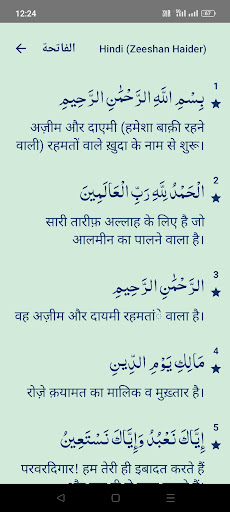 12:24
الفاتحة Hindi (Zeeshan Haider)
1
بِسْمِ اللَّهِ الرَّحْمَٰنِ الرَّحِيمِ
अज़ीम और दाएमी (हमेशा बाक़ी रहने
वाली) रहमतों वाले ख़ुदा के नाम से शुरू।
2
الْحَمْدُ لِلَّهِ رَبِّ الْعَالَمِينَ
सारी तारीफ़ अल्लाह के लिए है जो
आलमीन का पालने वाला है।
3
الرَّحْمَٰنِ الرَّحِيمِ
वह अज़ीम और दायमी रहमतांे वाला है।
4
مَالِكِ يَوْمِ الدِّينِ
रोज़े क़यामत का मालिक व मुख़्तार है।
5
إِيَّاكَ نَعْبُدُ وَإِيَّاكَ نَسْتَعِينُ
परवरदिगार! हम तेरी ही इबादत करते हैं